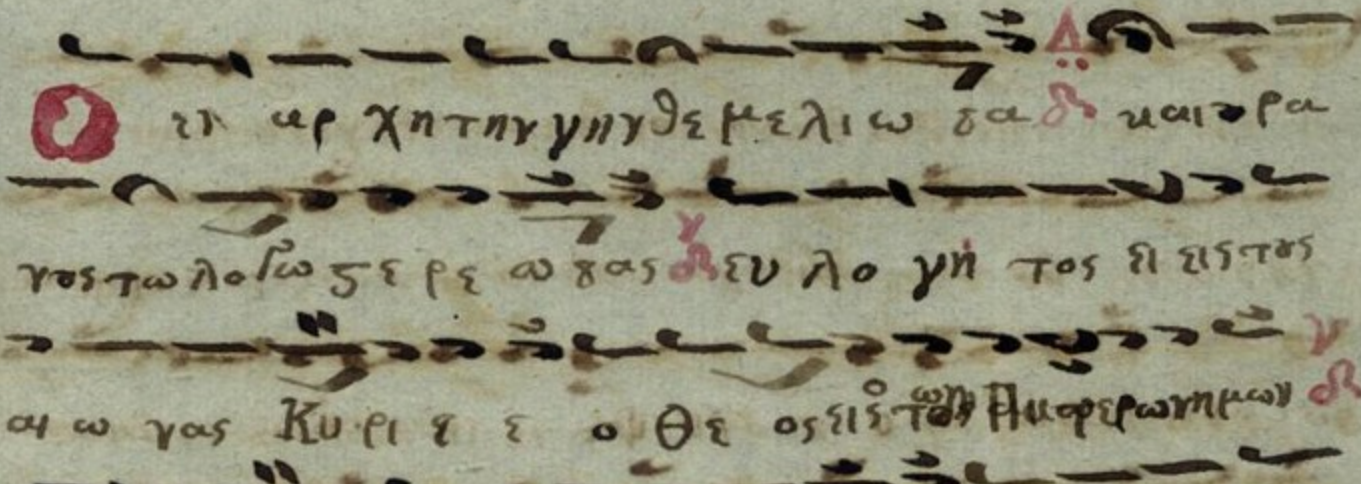 Ο εν αρ χη την γην θε με λι ω σα και ου ρα
νους τω λο γω στε ρε ω σας ευ λο γη τος ει εις τους
αι ω νας Κυ ρι ε ε ο Θε ος